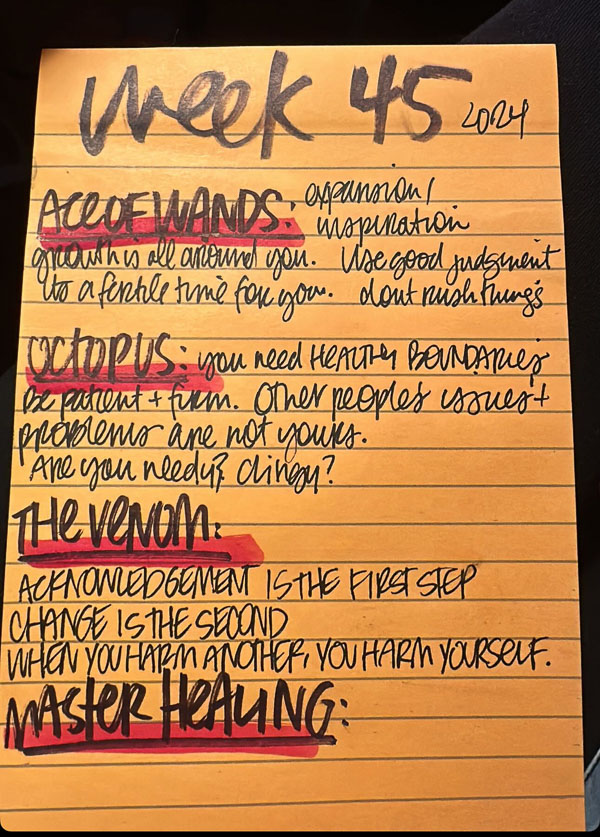 Week 45 2024
ACE OF WANDS: expansion/
inspiration
growth is all around you. Use good judgment
Its a fertile time for you. dont rush things
OCTOPUS: you need HEALTHY BOUNDARIES
be patient + firm. Other peoples issues +
problems are not yours.
Are you needy? clingy?
THE VENOM:
ACKNOWLEDGEMENT IS THE FIRST STEP
CHANGE IS THE SECOND
WHEN YOU HARM ANOTHER, YOU HARM YOURSELF.
MASTER HEALING: